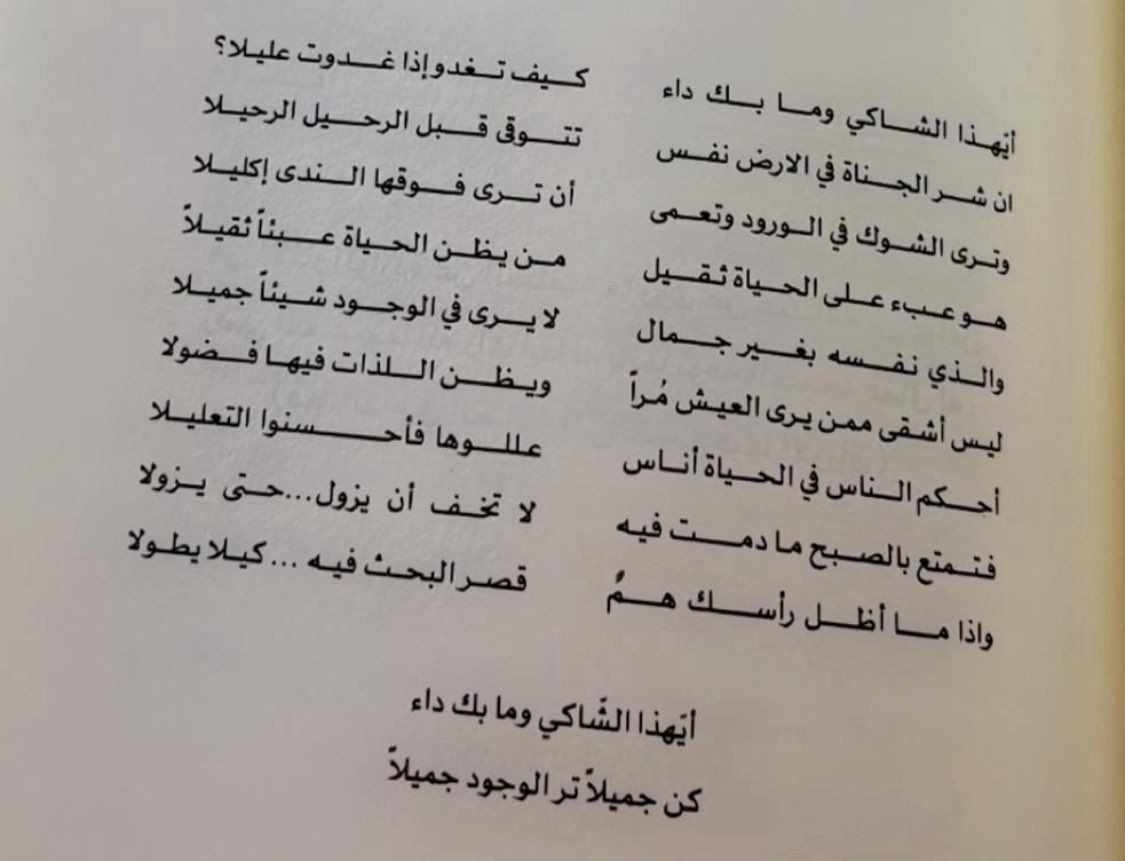 أيّهذا الشاكي وما بك داء كيف تغدو إذا غدوت عليلا؟
ان شر الجناة في الارض نفس تتوقى قبل الرحيل الرحيلا
وترى الشوك في الورود وتعمى أن ترى فوقها الندى إكليلا
هو عبء على الحياة ثقيل من يظن الحياة عبئاً ثقيلاً
والذي نفسه بغير جمال لا يرى في الوجود شيئاً جميلا
ليس أشقى ممن يرى العيش مُراً ويظن اللذات فيها فضولا
أحكم الناس في الحياة أناس عللوها فأحسنوا التعليلا
فتمتع بالصبح ما دمت فيه لا تخف أن يزول...حتى يزولا
واذا ما أظل رأسك همٌ قصر البحث فيه ... كيلا يطولا
أيّهذا الشّاكي وما بك داء
كن جميلاً تر الوجود جميلاً